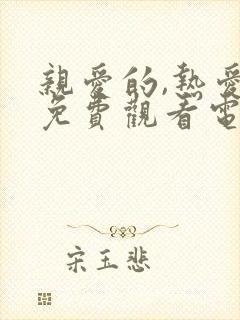 親愛的,熱愛
免費觀看電
宋玉悲